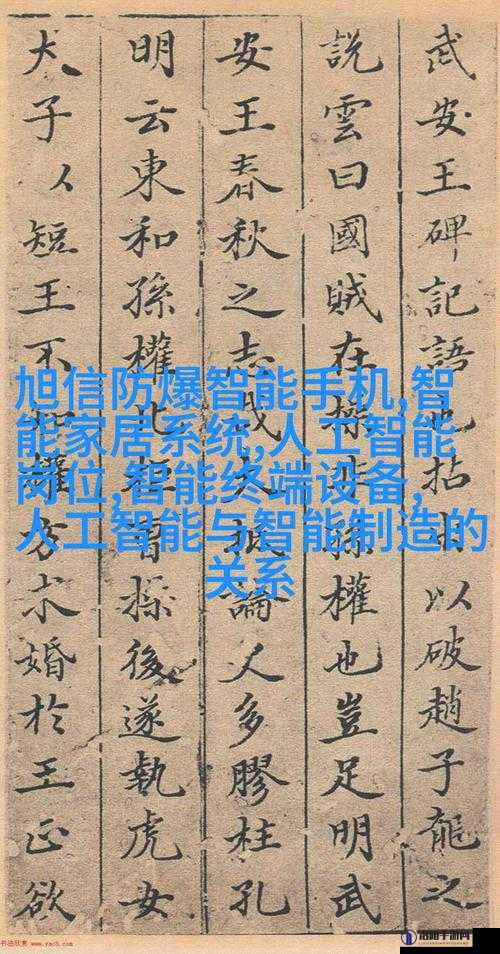 武安王碑記語也拈出以破趙子龍之
說雲曰國賊在操非孫權也豈足明武
安王春秋之志哉大抵論人多膠柱孔
明云東和孫權北拒曹操後遂執虎女
犬子人短王不知權方求婚於王正欲
旭信防爆智能手机,智
能家居系统,人工智能
岗位,智能终端设备,
人工智能与智能制造的
关系
书法欣赏